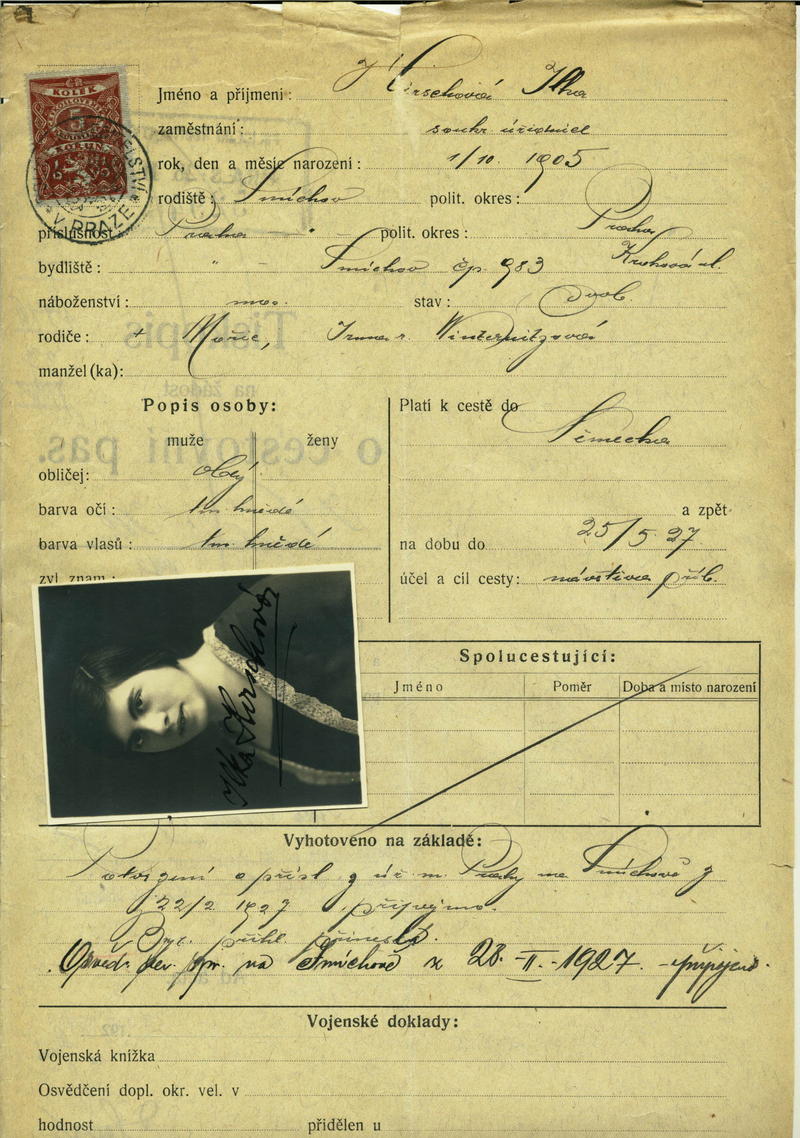 KOLEK
5
KORUN
V PRAZE
Jméno a příjmení: Hirschová Ilka
zaměstnání: soukr. úřednice
rok, den a měsíc narození: 1/10. 1905
rodiště: Smíchov polit. okres:
příslušnost: Praha " polit. okres: Praha
bydliště: " Smíchov čp. 983
náboženství: stav: svob.
rodiče: + Mořic, Irma r. Winternitzová
manžel(ka):
Popis osoby:
muže ženy
obličej: oblý
barva očí: tm. hnědé
barva vlasů: tm. hnědé
zvl. znam.:
Platí k cestě do
Německa
a zpět
na dobu do 25/5 27
účel a cíl cesty: návštěva příb.
Ilka Hirschová
Spolucestující:
Jméno Poměr Doba a místo narození
Vyhotoveno na základě:
Potvrzení o přísl. úř. m. Prahy na Smíchově z
22/2 1927 připojeno.
přihl. přinesla.
Osvěd. ber. spr. na Smíchově z 28.-II.-1927. připojeno.
Vojenské doklady:
Vojenská knížka
Osvědčení dopl. okr. vel. v
hodnost přidělen u